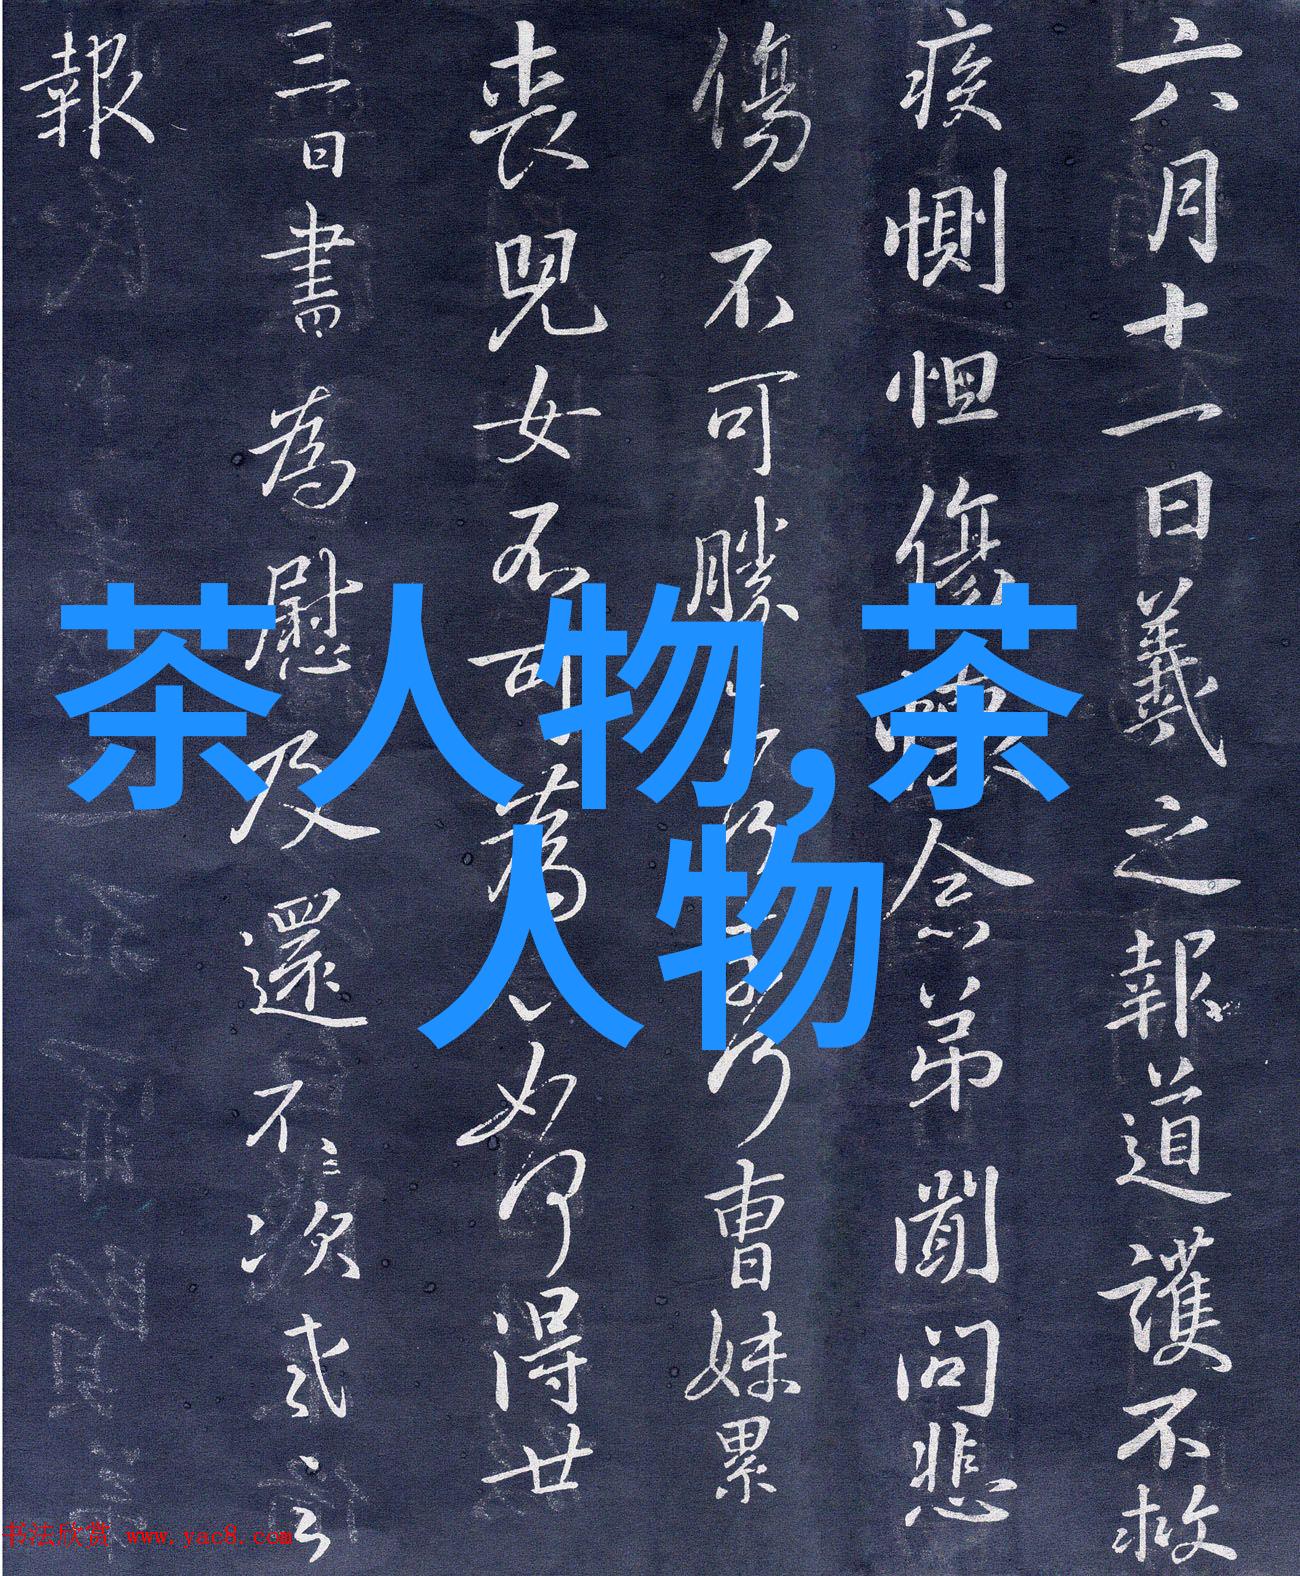 六月十一日羲之報道護不救
疾惻怛傷念弟聞問悲
傷不可勝曹妹累
喪兒女不可為得廿
三日書為慰及還不次
報
茶人物,茶
人物
书法欣赏 www.yac8.com